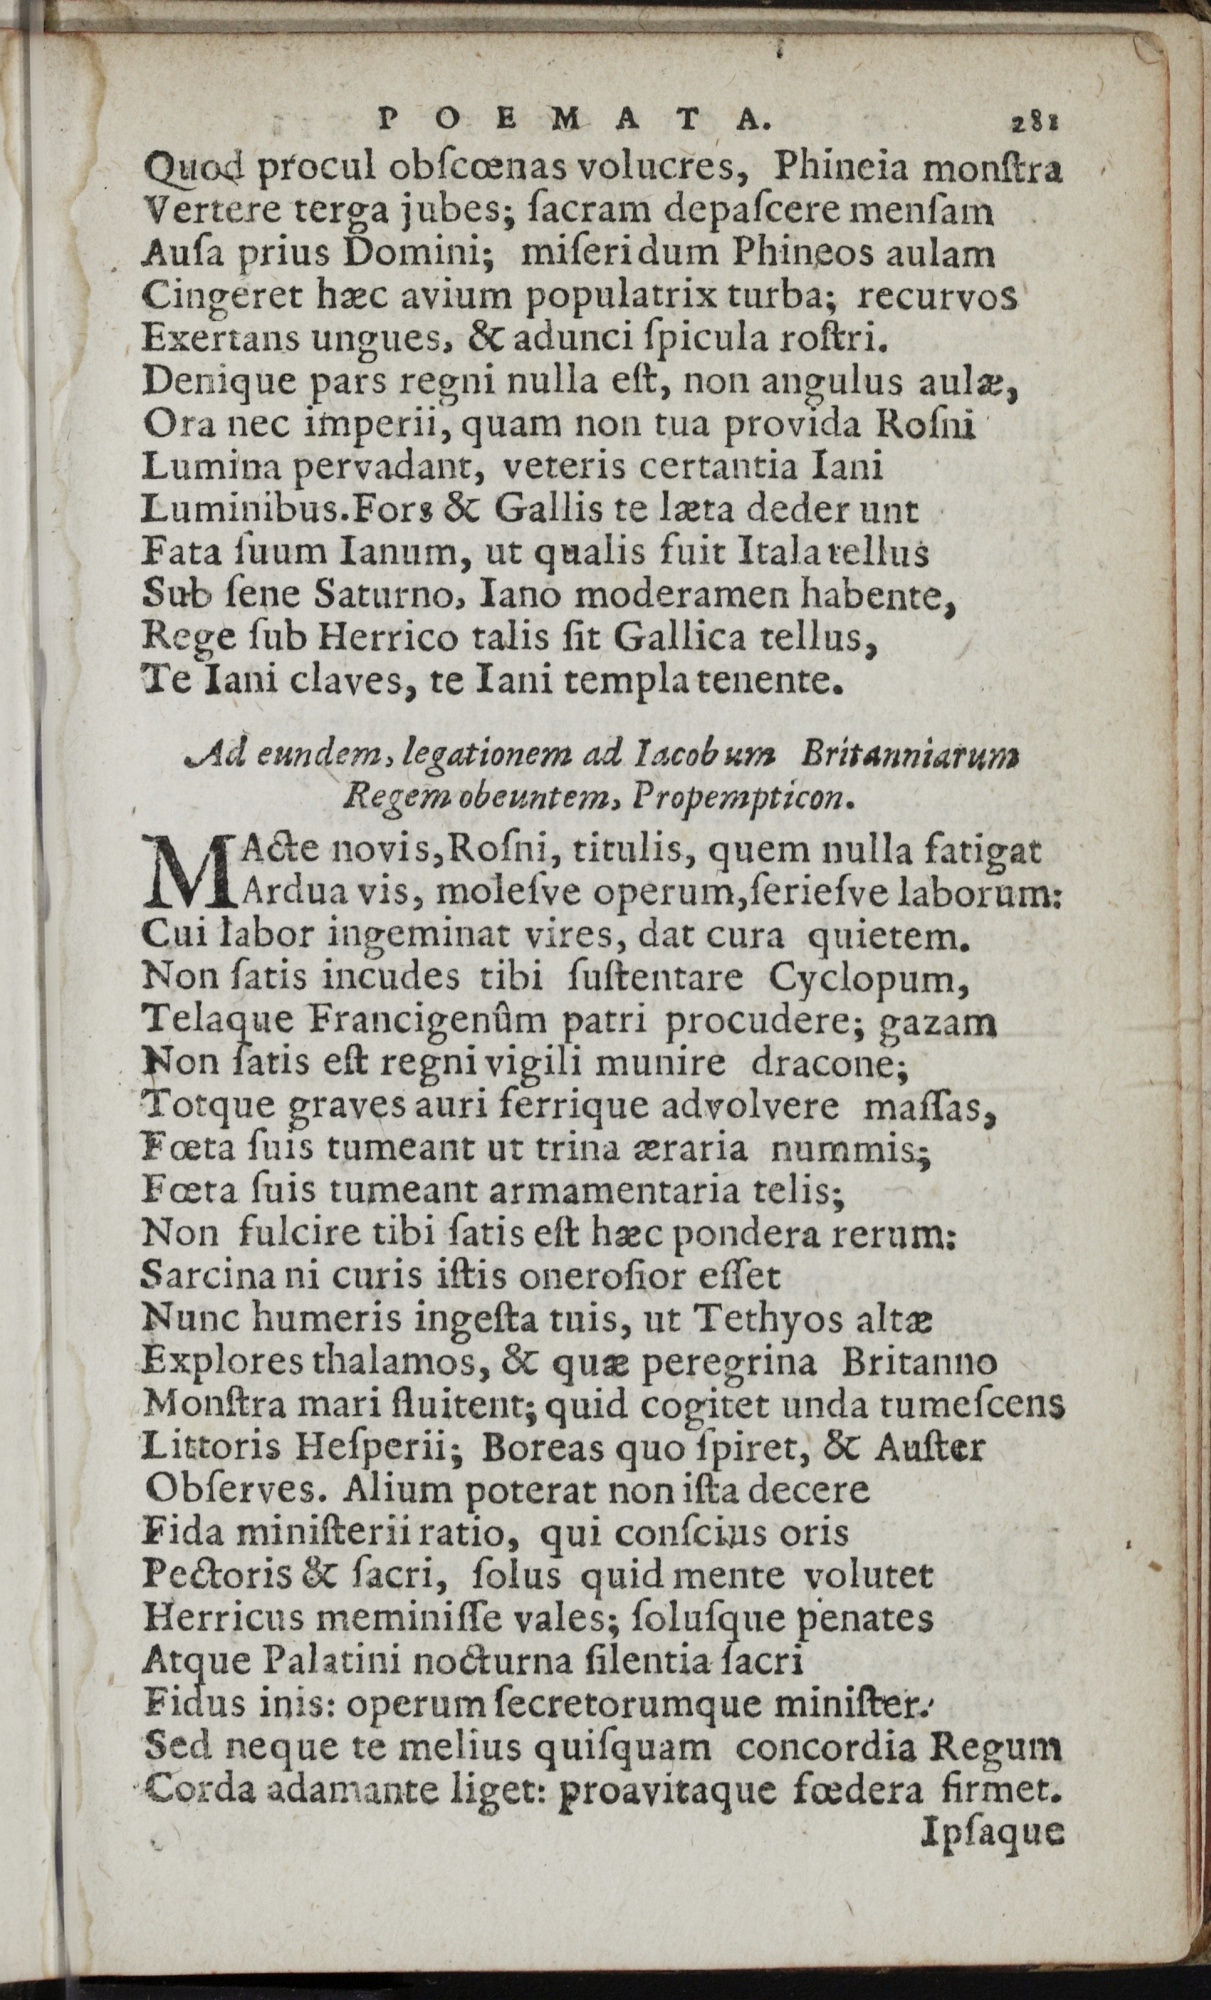 POEMATA. 281
Quod procul obſcœnas volucres, Phineia monſtra
Vertere terga jubes; ſacram depaſcere menſam
Auſa prius Domini; miſeri dum Phineos aulam
Cingeret hæc avium populatrix turba; recurvos
Exertans ungues, & adunci ſpicula roſtri.
Denique pars regni nulla eſt, non angulus aulæ,
Ora nec imperii, quam non tua provida Roſni
Lumina pervadant, veteris certantia Iani
Luminibus. Fors & Gallis te læta dederunt
Fata ſuum Ianum, ut qualis fuit Itala tellus
Sub ſene Saturno, Iano moderamen habente,
Rege ſub Herrico talis ſit Gallica tellus,
Te Iani claves, te Iani templa tenente.
Ad eundem, legationem ad Iacobum Britanniarum
Regem obeuntem, Propempticon.
MActe novis, Roſni, titulis, quem nulla fatigat
Ardua vis, moleſve operum, ſerieſve laborum:
Cui labor ingeminat vires, dat cura quietem.
Non ſatis incudes tibi ſuſtentare Cyclopum,
Telaque Francigenûm patri procudere; gazam
Non ſatis eſt regni vigili munire dracone;
Totque graves auri ferrique advolvere maſſas,
Fœta ſuis tumeant ut trina æraria nummis;
Fœta ſuis tumeant armamentaria telis;
Non fulcire tibi ſatis eſt hæc pondera rerum:
Sarcina ni curis iſtis oneroſior eſſet
Nunc humeris ingeſta tuis, ut Tethyos altæ
Explores thalamos, & quæ peregrina Britanno
Monſtra mari fluitent; quid cogitet unda tumeſcens
Littoris Heſperii; Boreas quo ſpiret, & Auſter
Obſerves. Alium poterat non iſta decere
Fida miniſterii ratio, qui conſcius oris
Pectoris & ſacri, ſolus quid mente volutet
Herricus meminiſſe vales; ſoluſque penates
Atque Palatini nocturna ſilentia ſacri
Fidus inis: operum ſecretorumque miniſter.
Sed neque te melius quiſquam concordia Regum
Corda adamante liget: proavitaque fœdera firmet.
Ipſaque